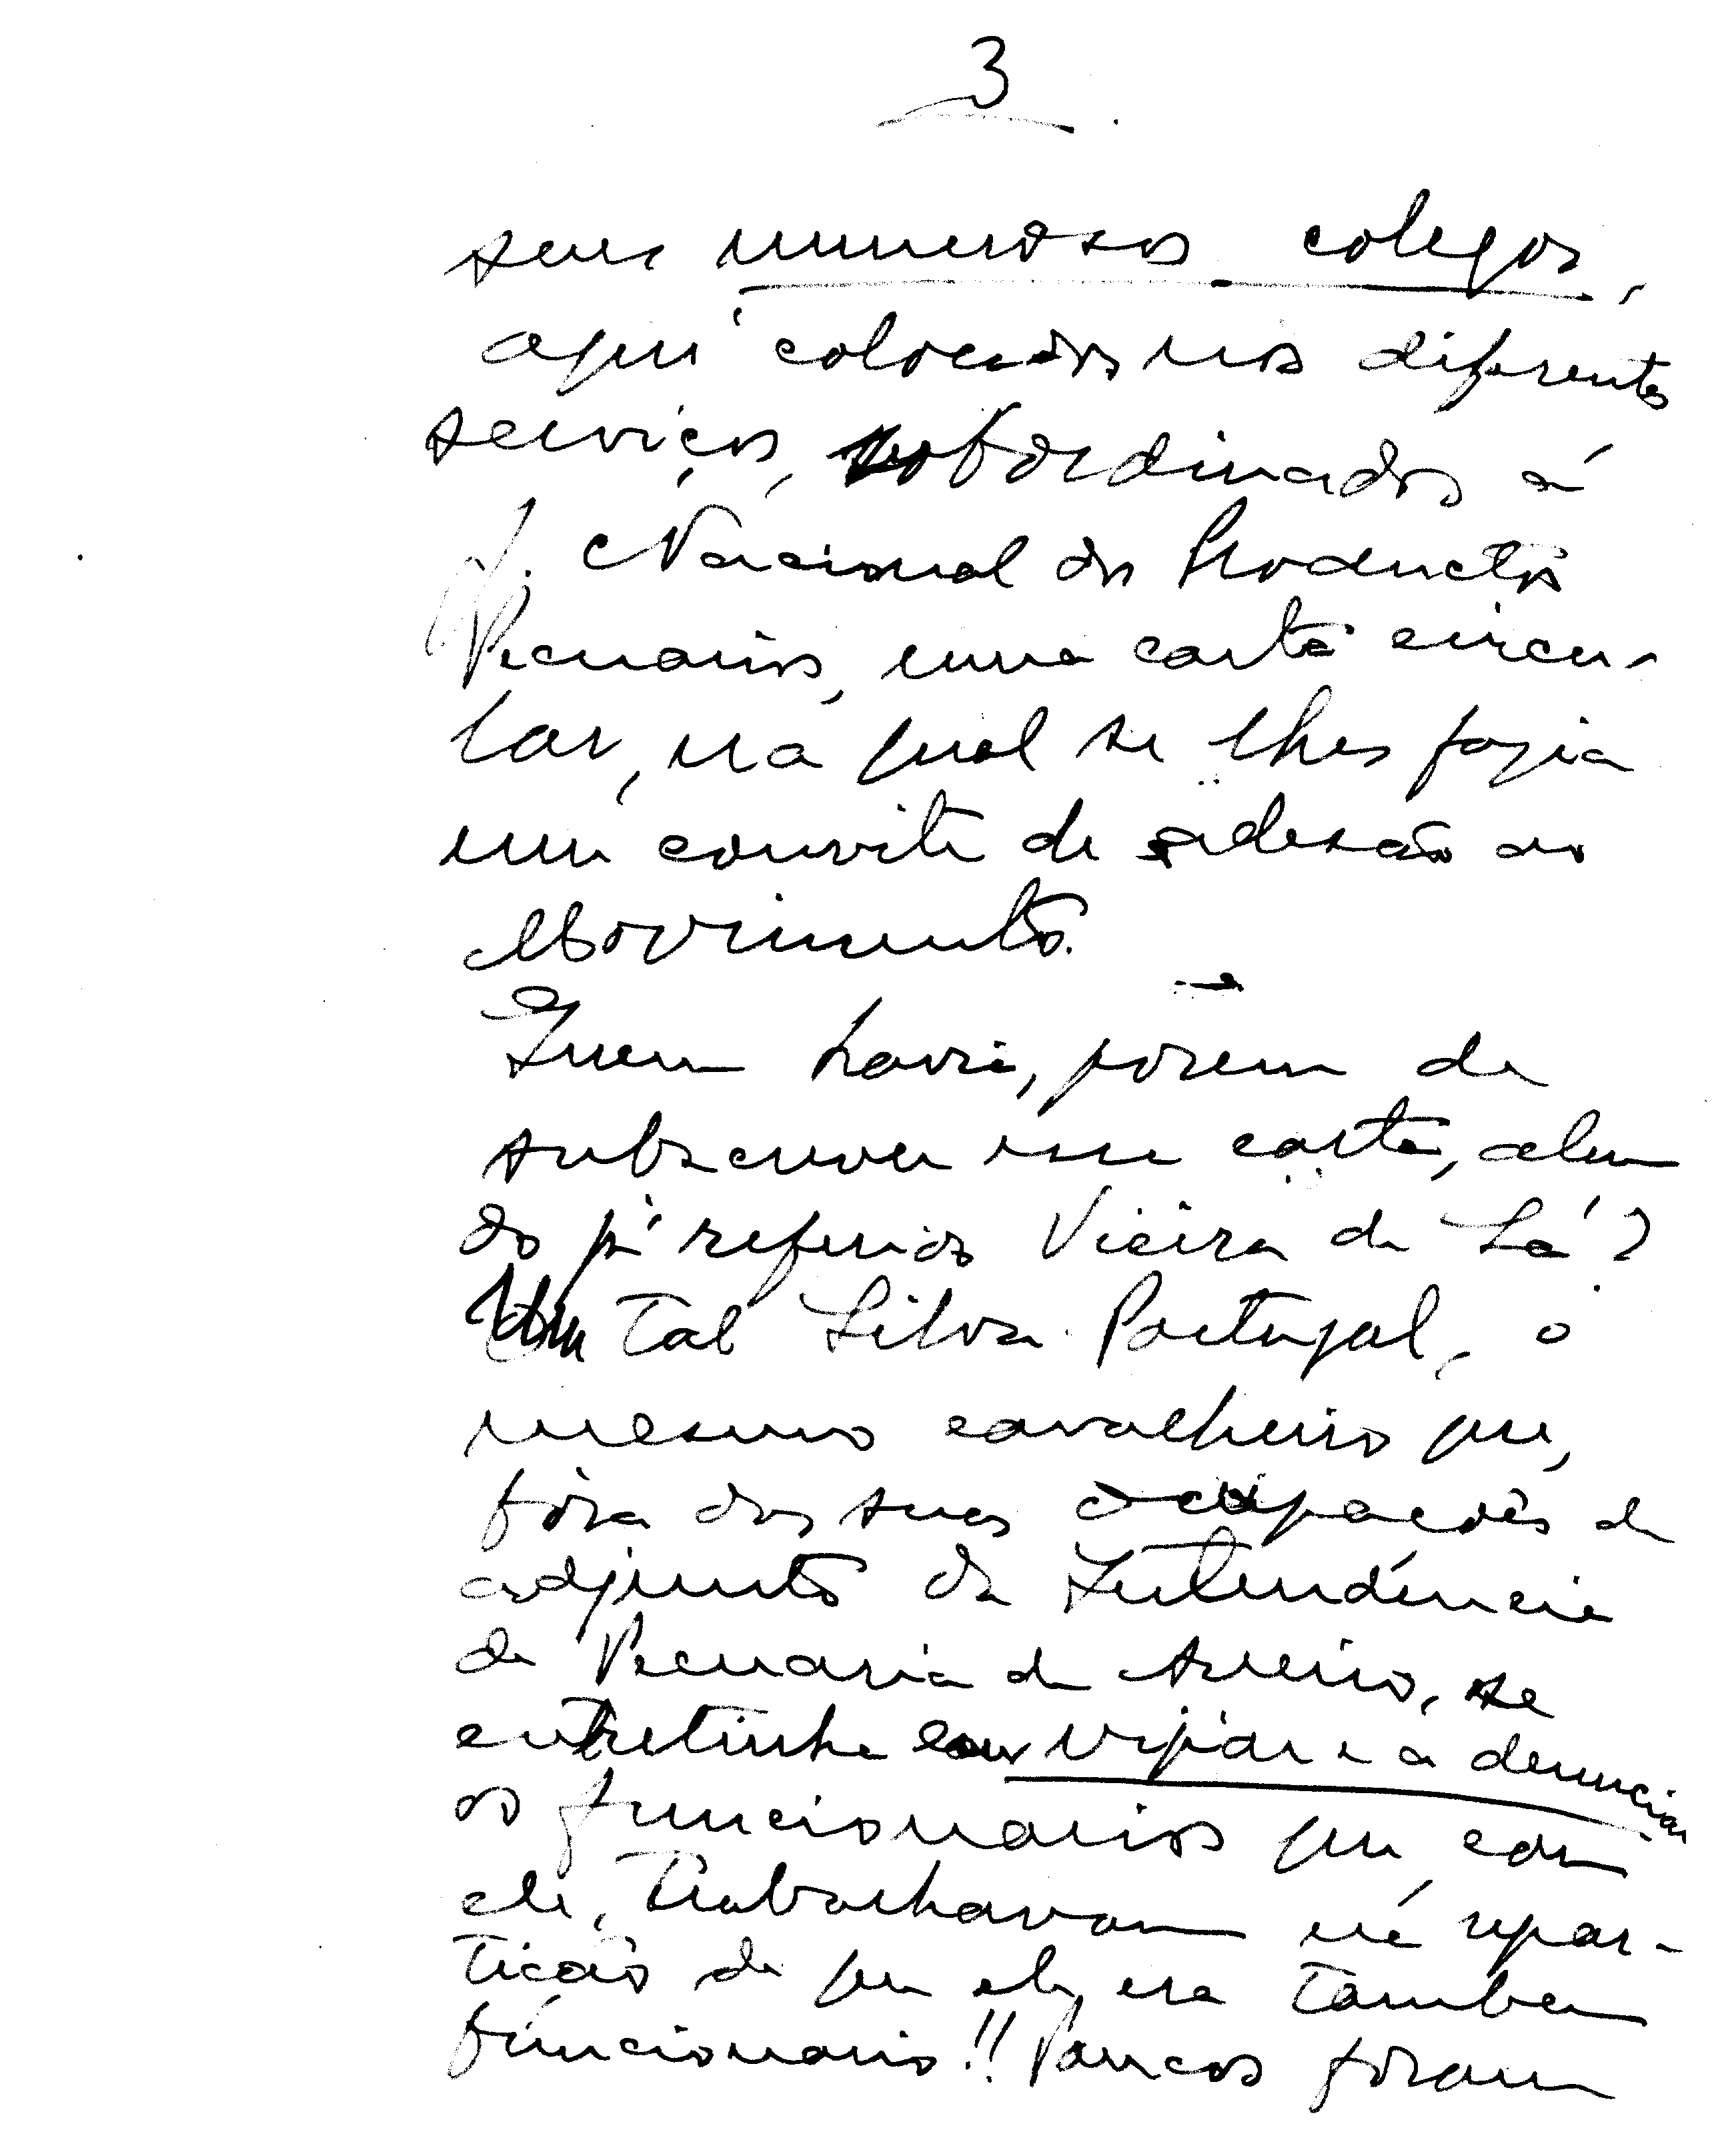 3
seus numerosos colegas,
aqui colocados nos diferentes
serviços, subordinados á
J. Nacional dos Productos
Pecuarios, uma carta circu-
lar, na qual se lhes fazia
um convite de adesão ao
Movimento.
Quem havia, porem de
subscrever essa carta, alem
do já referido Vieira de Sá?
Um tal Silva Portugal, o
mesmo cavalheiro que,
fóra das suas ocupações de
adjunto da Intendência
de Pecuaria de Aveiro, se
entretinha em vigiar e a denunciar
os funcionarios que com
ele, trabalhavam na repar-
tição de que ele era tambem
funcionario!! Poucos foram